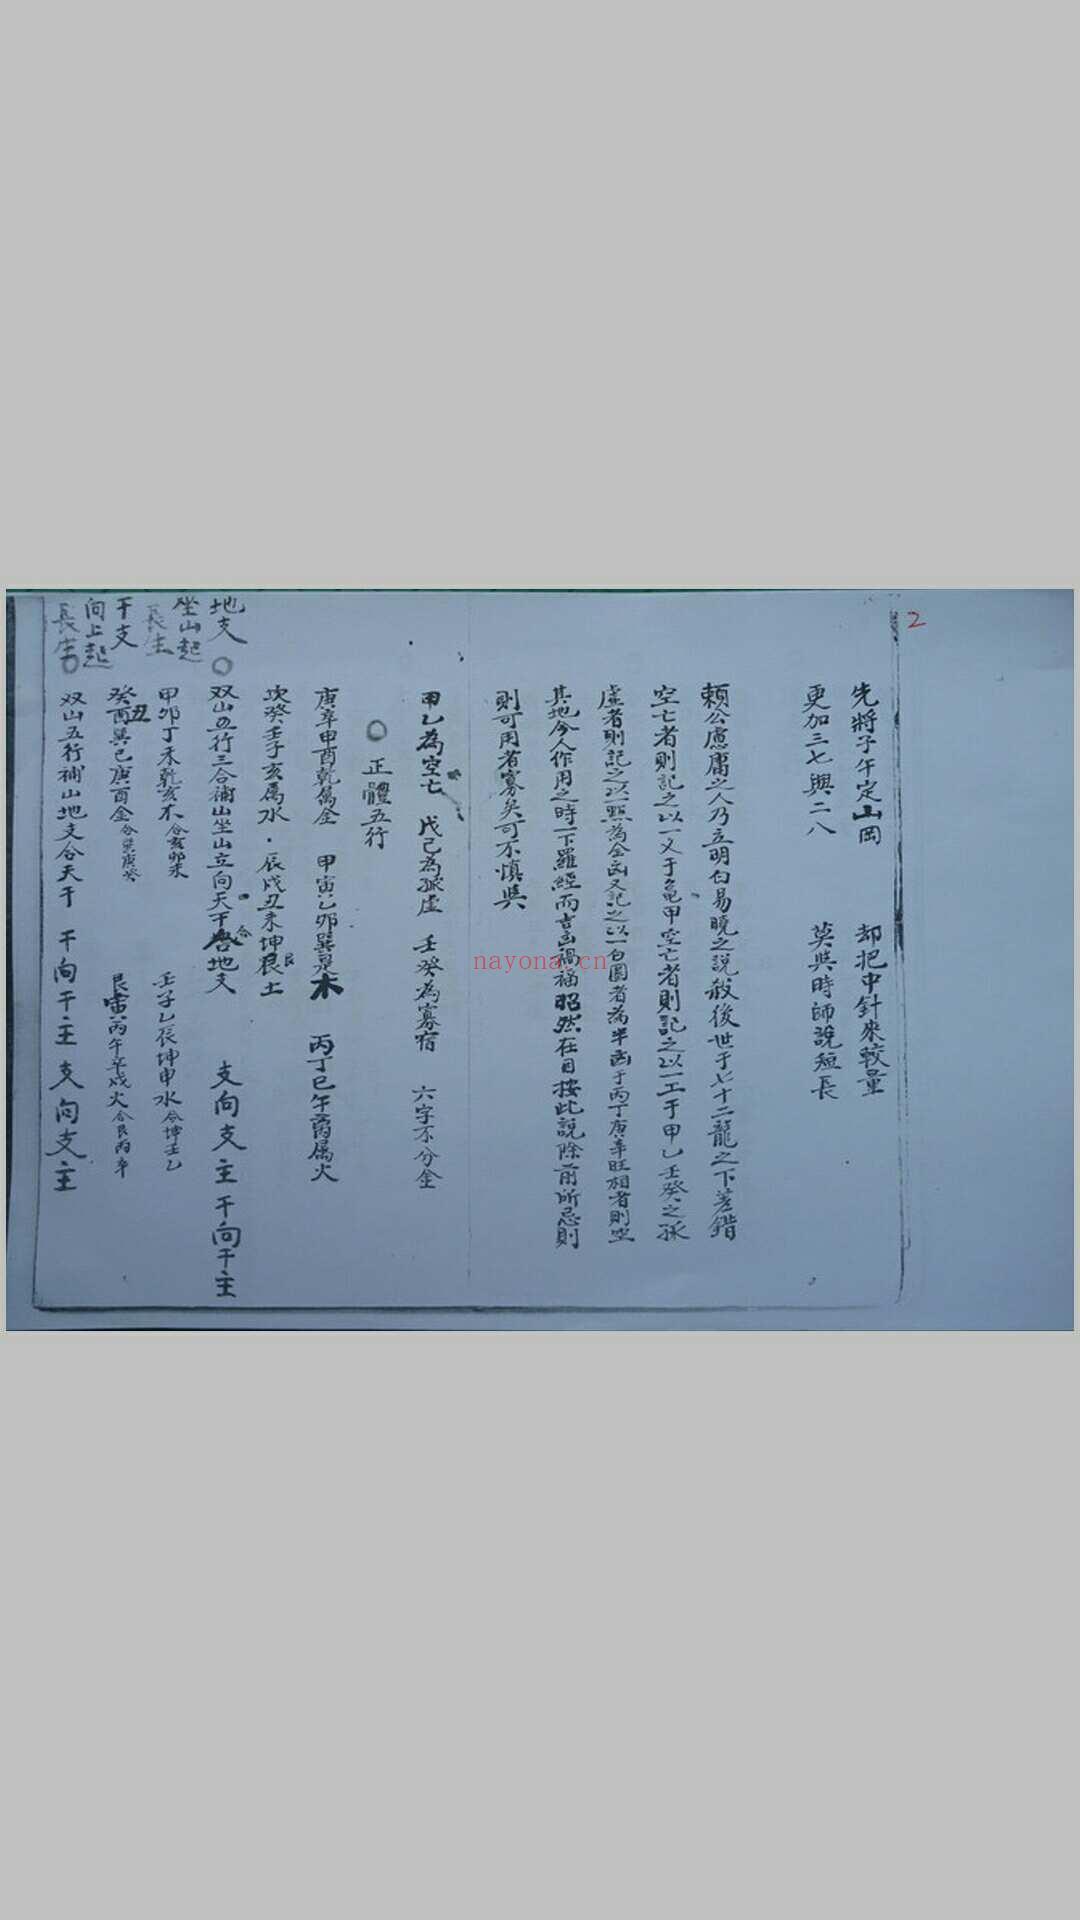 2
先將子午定山岡　却把中針來較量
更加三七與二八　莫與時師說短長
賴公慮庸之人乃立明白易曉之說救後世于七十二龍之下差錯
空亡者則記之以一乂于龟甲空亡者則記之以一工于甲乙壬癸之孤
虛者則記之以一點為全凶又記之以一白圈者為半凶于丙丁庚辛旺相者則空
其地今人作用之時一下羅經而吉凶禍福昭然在目按此說除前所忌則
則可用者寡矣可不慎與
甲乙為空亡　戊己為孤虛　壬癸為寡宿　六字不分金
○正體五行
庚辛申酉乾属金　甲寅乙卯巽是木　丙丁巳午离属火
坎癸壬子亥属水．辰戌丑未坤艮艮土
地支
坐山起
長生
○双山五行三合補山坐山立向天干合地支　支向支主干向干主
甲卯丁未乾亥木合亥卯未　壬子乙辰坤申水合坤壬乙
癸丑酉巽巳庚酉金合巽庚癸　艮寅丙午辛戌火合艮丙辛
干支
向上起
長生
○双山五行補山地支合天干　干向干主支向支主
nayona.cn